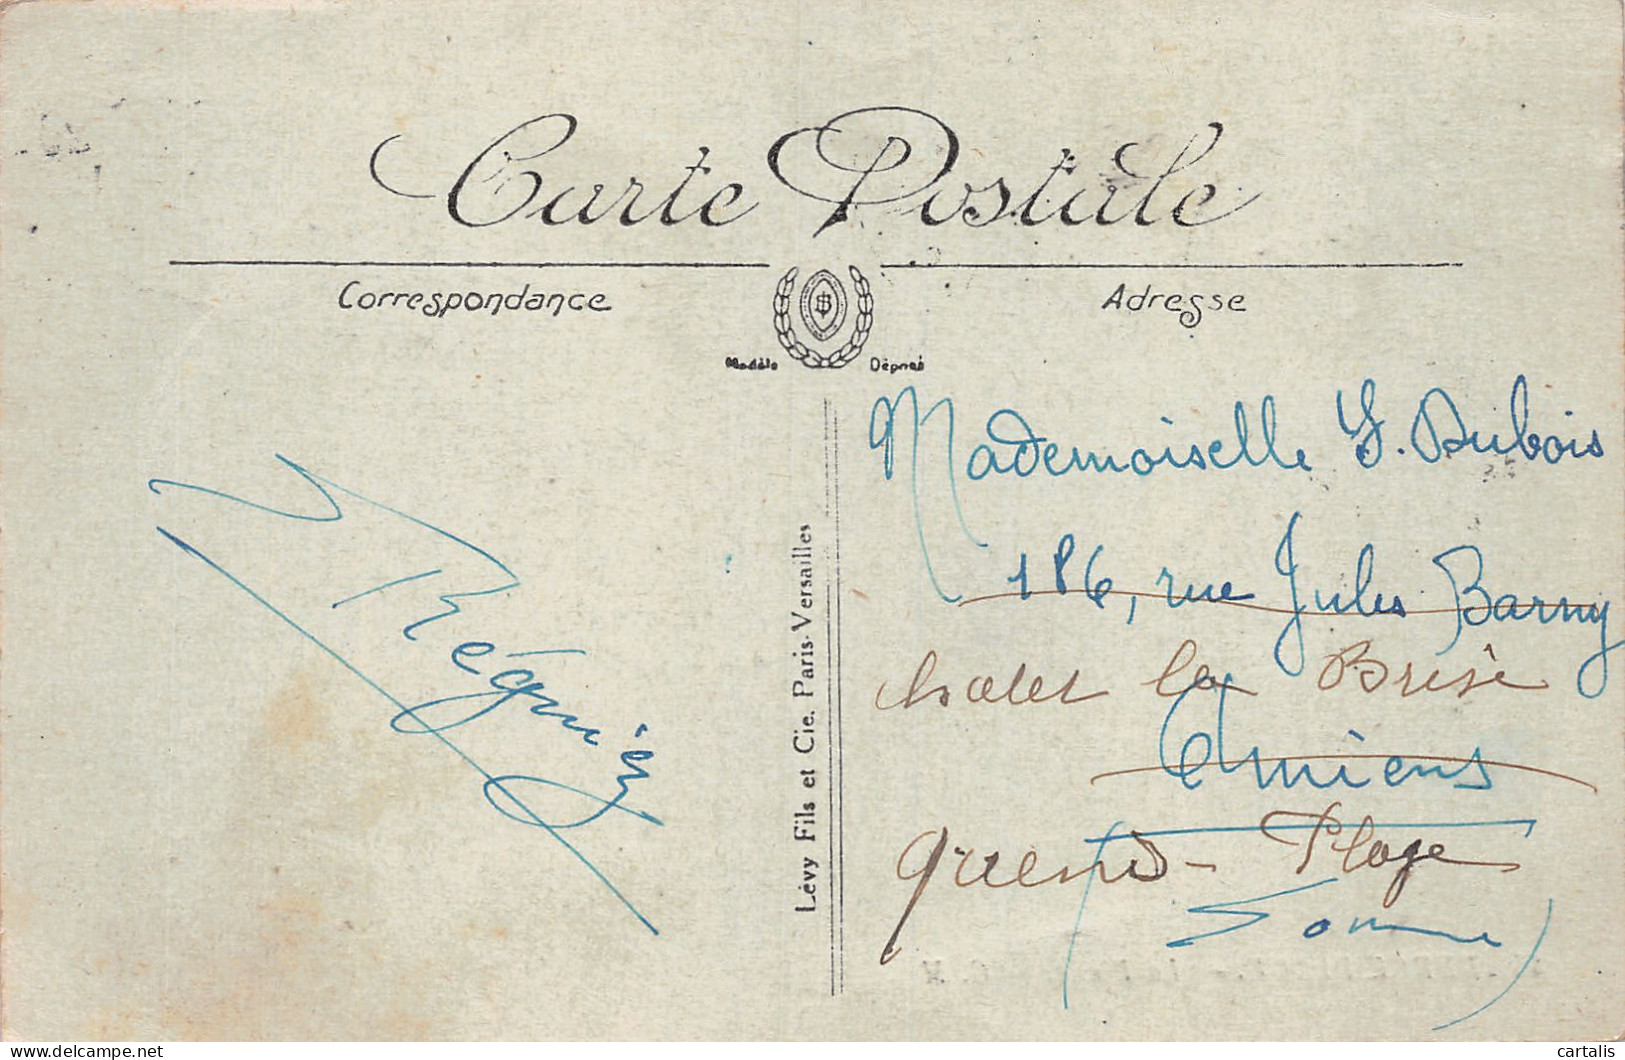 Carte Postale
Correspondance
Adresse
Modèle Déposé
Régnier
Lévy Fils et Cie. Paris-Versailles
Mademoiselle Y. Dubois
186, rue Jules Barny
Chalet la Brise
Amiens
Quend-Plage
(Somme)
delcampe.net
cartalis